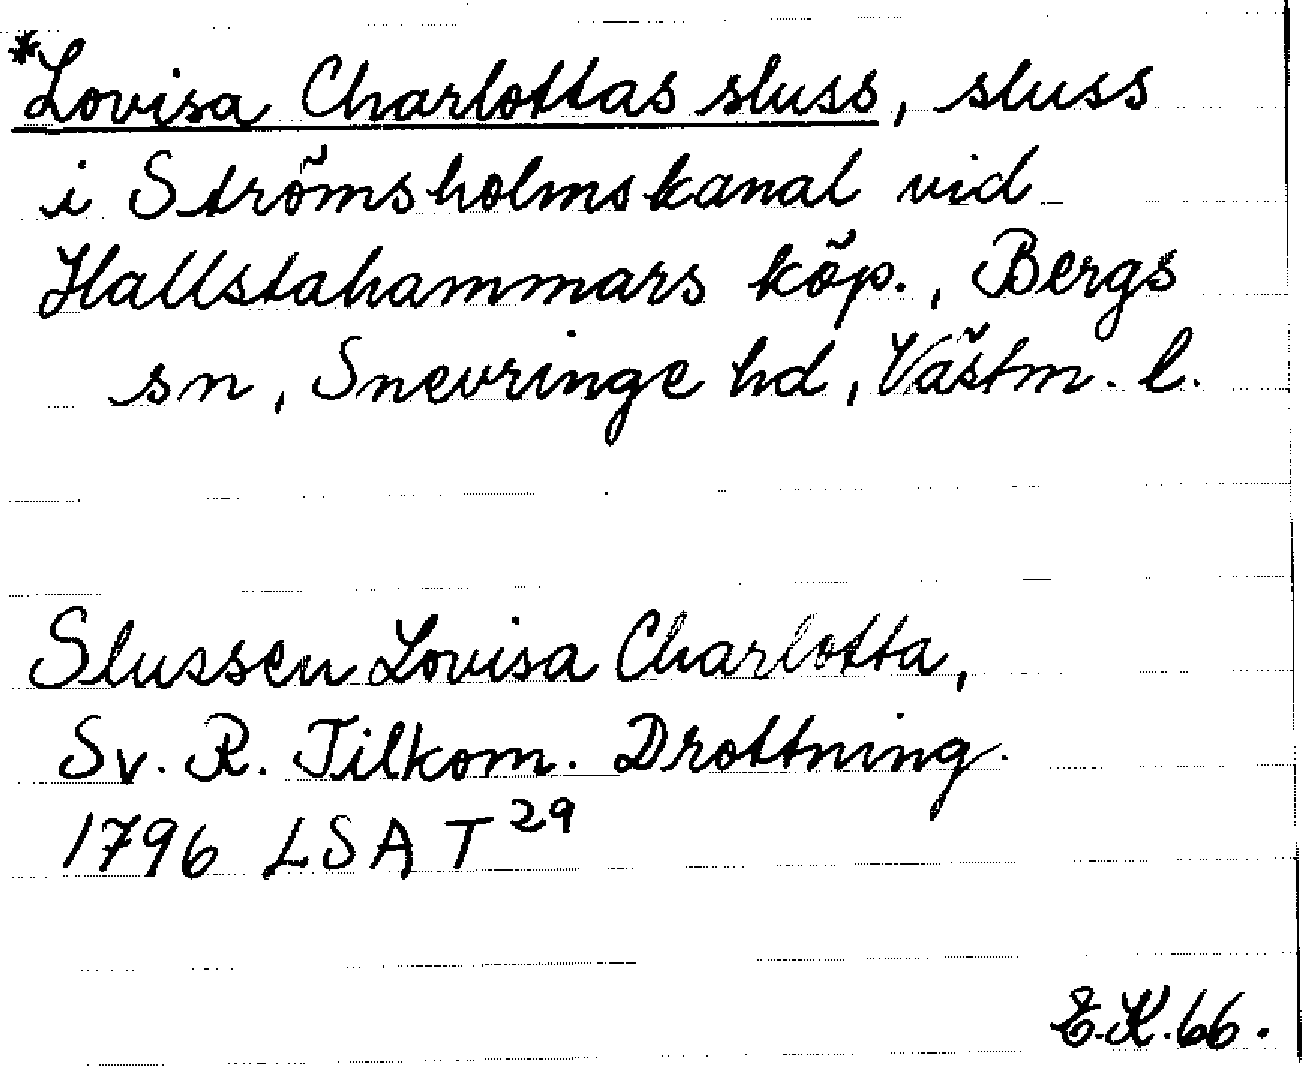 *Lovisa Charlottas sluss, sluss
i Strömsholmskanal vid
Hallstahammars köp., Bergs
sn, Snevringe hd, Västm. l.
Slussen Lovisa Charlotta,
Sv. R. Tilkom. Drottning.
1796 LSA T 29
E.K.66.